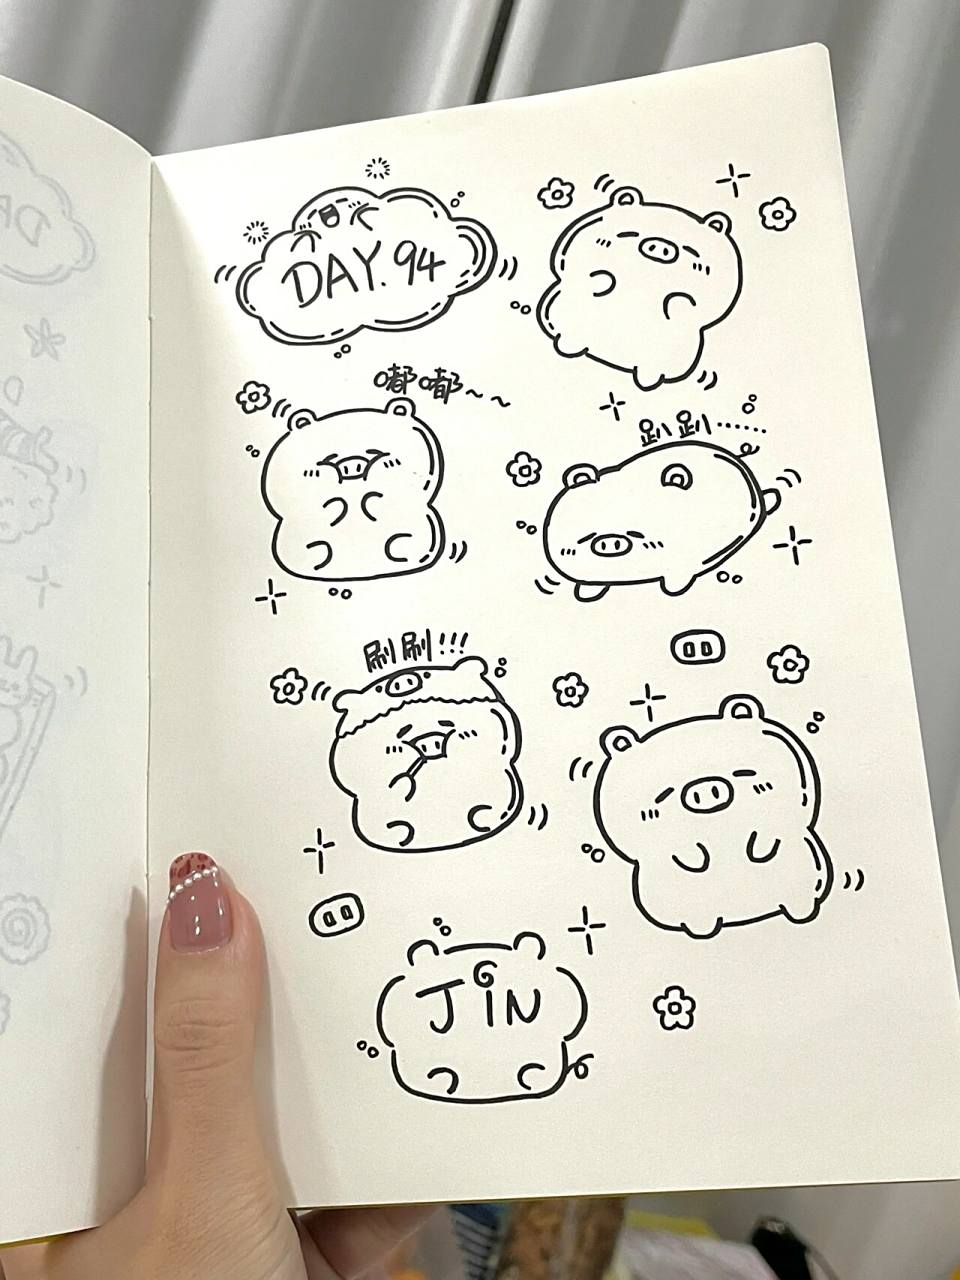 DAY.94
嘟嘟~~
趴趴……
刷刷!!!
JiN